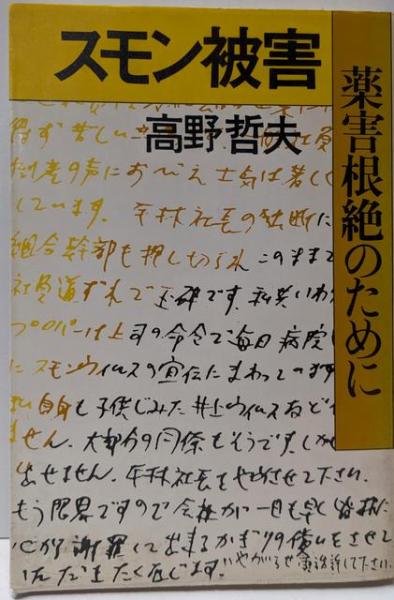 スモン被害
薬害根絶のために
高野哲夫
得ず苦しい
倒産の声におびえ士気は著しく
しています。平林社長の独断に
組合幹部も押し切られこのままで
社員道ずれで玉砕です。私共いわゆ
プロパーは上司の命令で毎日病院
にスモンウイルスの宣伝にまわっています
自身も子供じみた井上ウイルスなど
ません。大部分の同僚もそうです。しか
出せません。平林社長をやめさせて下さい。
もう限界ですので会社が一日も早く皆様に
心から謝罪して出来るかぎりの償いをさせて
いただきたく存じます。